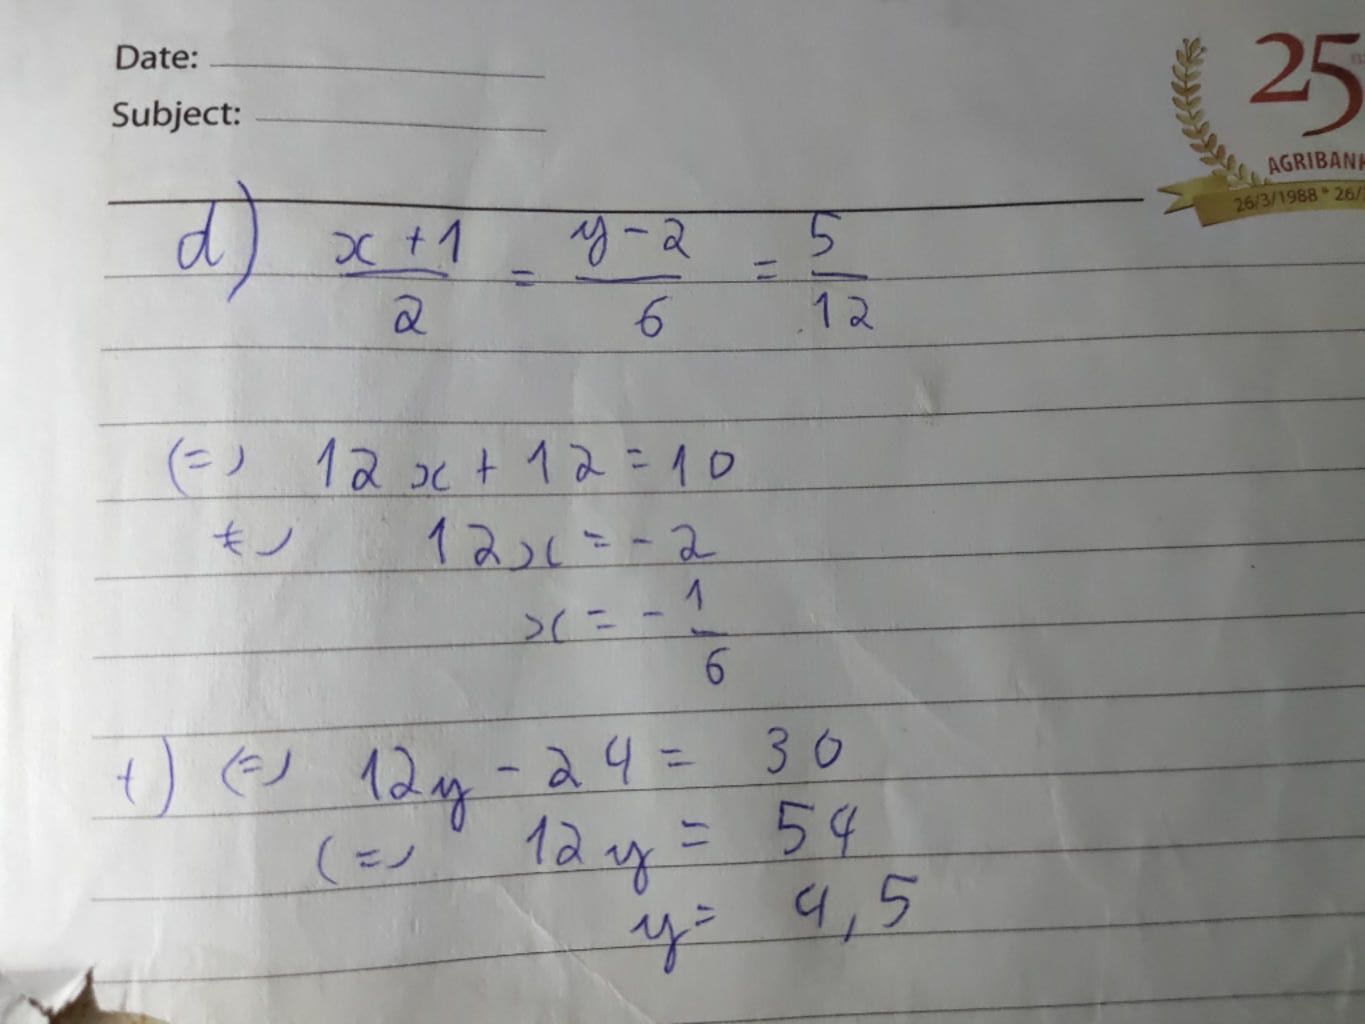 Date:
Subject:
25
AGRIBANK
26/3/1988 * 26/
d) x + 1 / 2 = y - 2 / 6 = 5 / 12
(=) 12x + 12 = 10
12x = - 2
x = - 1 / 6
+) (=) 12y - 24 = 30
(=) 12y = 54
y = 4,5